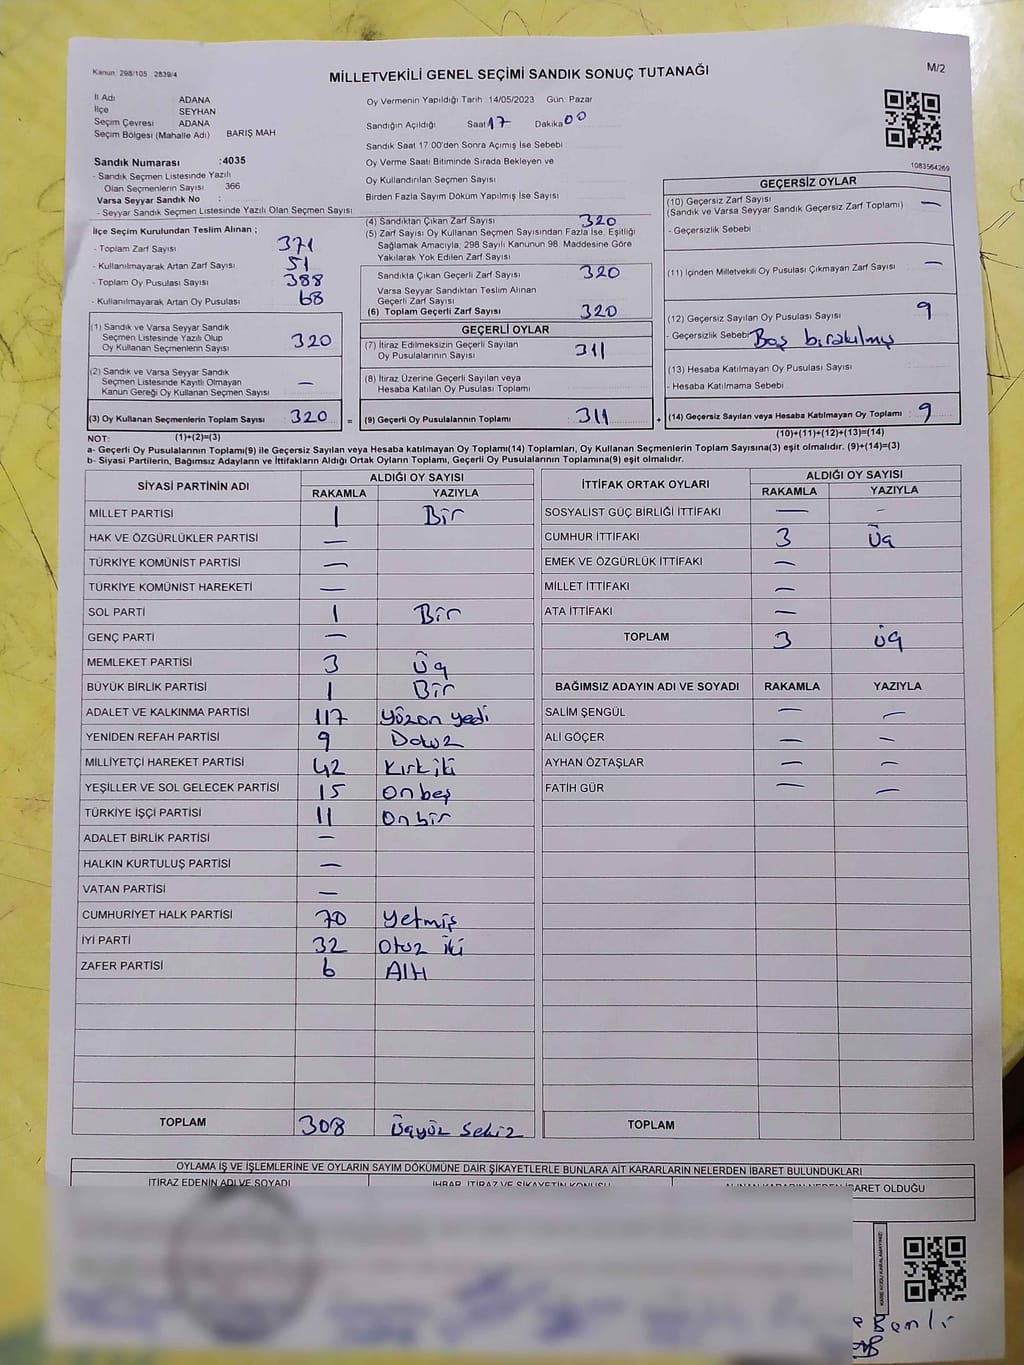 Kanun, 298/105 2839/4
MİLLETVEKİLİ GENEL SEÇİMİ SANDIK SONUÇ TUTANAĞI
M/2
İl Adı ADANA
İlçe SEYHAN
Seçim Çevresi ADANA
Seçim Bölgesi (Mahalle Adı) BARIŞ MAH
Sandık Numarası :4035
- Sandık Seçmen Listesinde Yazılı
Olan Seçmenlerin Sayısı 366
Varsa Seyyar Sandık No :
- Seyyar Sandık Seçmen Listesinde Yazılı Olan Seçmen Sayısı
Oy Vermenin Yapıldığı Tarih 14/05/2023 Gün: Pazar
Sandığın Açıldığı Saat 17 Dakika 00
Sandık Saat 17.00'den Sonra Açımış İse Sebebi
Oy Verme Saati Bitiminde Sırada Bekleyen ve
Oy Kullandırılan Seçmen Sayısı
Birden Fazla Sayım Döküm Yapılmış İse Sayısı
1083564269
İlçe Seçim Kurulundan Teslim Alınan ;
- Toplam Zarf Sayısı 371
- Kullanılmayarak Artan Zarf Sayısı 51
- Toplam Oy Pusulası Sayısı 388
- Kullanılmayarak Artan Oy Pusulası 68
(1) Sandık ve Varsa Seyyar Sandık
Seçmen Listesinde Yazılı Olup
Oy Kullanan Seçmenlerin Sayısı 320
(2) Sandık ve Varsa Seyyar Sandık
Seçmen Listesinde Kayıtlı Olmayan
Kanun Gereği Oy Kullanan Seçmen Sayısı —
(3) Oy Kullanan Seçmenlerin Toplam Sayısı 320 =
(4) Sandıktan Çıkan Zarf Sayısı 320
(5) Zarf Sayısı Oy Kullanan Seçmen Sayısından Fazla İse, Eşitliği
Sağlamak Amacıyla, 298 Sayılı Kanunun 98. Maddesine Göre
Yakılarak Yok Edilen Zarf Sayısı
Sandıkta Çıkan Geçerli Zarf Sayısı 320
Varsa Seyyar Sandıktan Teslim Alınan
Geçerli Zarf Sayısı
(6) Toplam Geçerli Zarf Sayısı 320
GEÇERLİ OYLAR
(7) İtiraz Edilmeksizin Geçerli Sayılan
Oy Pusulalarının Sayısı 311
(8) İtiraz Üzerine Geçerli Sayılan veya
Hesaba Katılan Oy Pusulası Toplamı
(9) Geçerli Oy Pusulalarının Toplamı 311 +
GEÇERSİZ OYLAR
(10) Geçersiz Zarf Sayısı
(Sandık ve Varsa Seyyar Sandık Geçersiz Zarf Toplamı) —
- Geçersizlik Sebebi
(11) İçinden Milletvekili Oy Pusulası Çıkmayan Zarf Sayısı —
(12) Geçersiz Sayılan Oy Pusulası Sayısı 9
- Geçersizlik Sebebi Boş bırakılmış
(13) Hesaba Katılmayan Oy Pusulası Sayısı
- Hesaba Katılmama Sebebi
(14) Geçersiz Sayılan veya Hesaba Katılmayan Oy Toplamı 9
NOT: (1)+(2)=(3)
(10)+(11)+(12)+(13)=(14)
a- Geçerli Oy Pusulalarının Toplamı(9) ile Geçersiz Sayılan veya Hesaba katılmayan Oy Toplamı(14) Toplamları, Oy Kullanan Seçmenlerin Toplam Sayısına(3) eşit olmalıdır. (9)+(14)=(3)
b- Siyasi Partilerin, Bağımsız Adayların ve İttifakların Aldığı Ortak Oyların Toplamı, Geçerli Oy Pusulalarının Toplamına(9) eşit olmalıdır.
SİYASİ PARTİNİN ADI ALDIĞI OY SAYISI
RAKAMLA YAZIYLA
MİLLET PARTİSİ 1 Bir
HAK VE ÖZGÜRLÜKLER PARTİSİ —
TÜRKİYE KOMÜNİST PARTİSİ —
TÜRKİYE KOMÜNİST HAREKETİ —
SOL PARTİ 1 Bir
GENÇ PARTİ —
MEMLEKET PARTİSİ 3 Üç
BÜYÜK BİRLİK PARTİSİ 1 Bir
ADALET VE KALKINMA PARTİSİ 117 Yüzon yedi
YENİDEN REFAH PARTİSİ 9 Dokuz
MİLLİYETÇİ HAREKET PARTİSİ 42 Kırk iki
YEŞİLLER VE SOL GELECEK PARTİSİ 15 Onbeş
TÜRKİYE İŞÇİ PARTİSİ 11 Onbir
ADALET BİRLİK PARTİSİ —
HALKIN KURTULUŞ PARTİSİ —
VATAN PARTİSİ —
CUMHURİYET HALK PARTİSİ 70 Yetmiş
İYİ PARTİ 32 Otuz iki
ZAFER PARTİSİ 6 Altı
TOPLAM 308 Üçyüz Sekiz
İTTİFAK ORTAK OYLARI ALDIĞI OY SAYISI
RAKAMLA YAZIYLA
SOSYALİST GÜÇ BİRLİĞİ İTTİFAKI — -
CUMHUR İTTİFAKI 3 Üç
EMEK VE ÖZGÜRLÜK İTTİFAKI —
MİLLET İTTİFAKI —
ATA İTTİFAKI —
TOPLAM 3 Üç
BAĞIMSIZ ADAYIN ADI VE SOYADI RAKAMLA YAZIYLA
SALİM ŞENGÜL — —
ALİ GÖÇER — —
AYHAN ÖZTAŞLAR — —
FATİH GÜR — —
TOPLAM
OYLAMA İŞ VE İŞLEMLERİNE VE OYLARIN SAYIM DÖKÜMÜNE DAİR ŞİKAYETLERLE BUNLARA AİT KARARLARIN NELERDEN İBARET BULUNDUKLARI
İTİRAZ EDENİN ADI VE SOYADI İHBAR, İTİRAZ VE ŞİKAYETİN KONUSU ALINAN KARARIN NEDEN İBARET OLDUĞU
KARE KODU KARALAMAYINIZ!